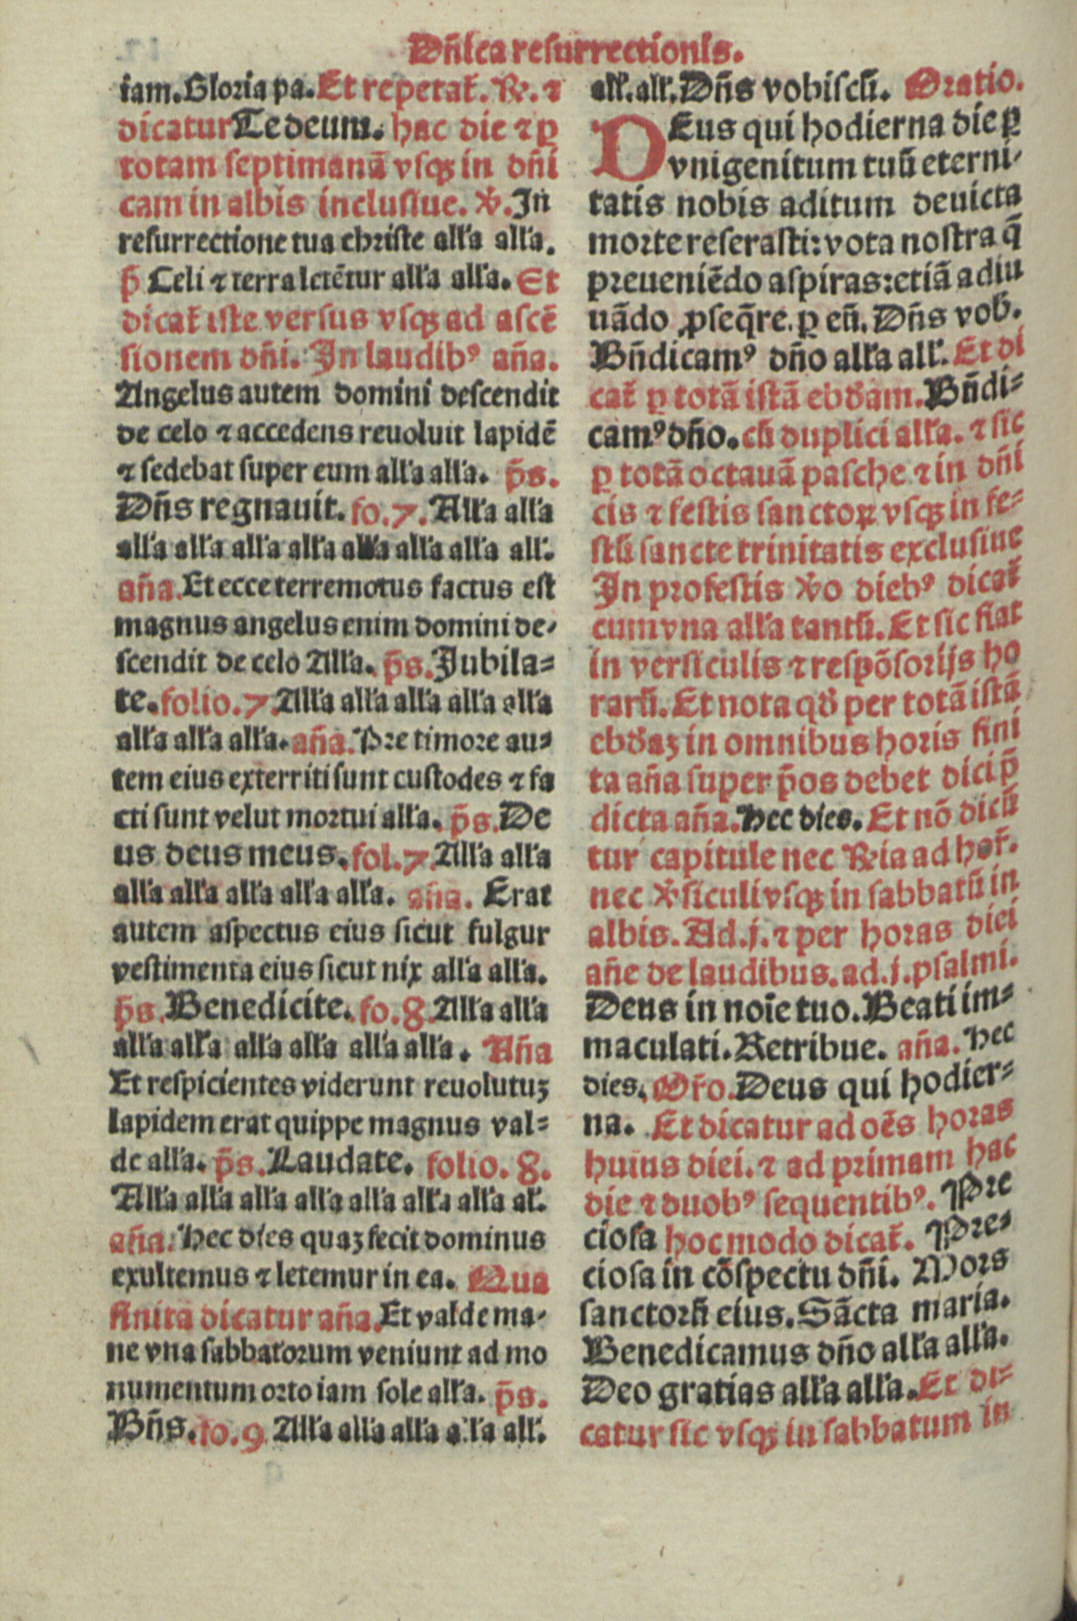 Dñica resurrectionis.
iam. Gloria pa. Et repetat̃. ꝶ. ⁊
dicatur Te deum. hac die ⁊ ꝑ
totam septimanã vsqꝫ in dñi
cam in albis inclusiue. ℣. In
resurrectione tua christe alľa alľa.
p̃ Celi ⁊ terra letẽtur alľa alľa. Et
dicat̃ iste versus vsqꝫ ad ascẽ
sionem dñi. In laudibꝰ aña.
Angelus autem domini descendit
de celo ⁊ accedens reuoluit lapidẽ
⁊ sedebat super eum alľa alľa. p̃s.
Dñs regnauit. fo. 7. Alľa alľa
alľa alľa alľa alľa alľa alľa alľa alľ.
aña. Et ecce terremotus factus est
magnus angelus enim domini de-
scendit de celo Alľa. p̃s. Jubila-
te. folio. 7. Alľa alľa alľa alľa alľa
alľa alľa alľa. aña. Pre timore au-
tem eius exterriti sunt custodes ⁊ fa
cti sunt velut mortui alľa. p̃s. De
us deus meus. fol. 7. Alľa alľa
alľa alľa alľa alľa alľa. aña. Erat
autem aspectus eius sicut fulgur
vestimenta eius sicut nix alľa alľa.
p̃s. Benedicite. fo. 8. Alľa alľa
alľa alľa alľa alľa alľa alľa. Aña
Et respicientes viderunt reuolutuꝫ
lapidem erat quippe magnus val-
de alľa. p̃s. Laudate. folio. 8.
Alľa alľa alľa alľa alľa alľa alľa aľ.
aña. Hec dies quaꝫ fecit dominus
exultemus ⁊ letemur in ea. Qua
finita dicatur aña. Et valde ma-
ne vna sabbatorum veniunt ad mo
numentum orto iam sole alľa. p̃s.
Bñs. fo. 9 Alľa alľa alľa alľa alľ.
alľ. alľ. Dñs vobiscũ. Oratio.
DEus qui hodierna die ꝑ
vnigenitum tuũ eterni-
tatis nobis aditum deuicta
morte reserasti: vota nostra q̃
preueniẽdo aspiras: etiã adiu
uãdo ꝓseq̃re. ꝑ eũ. Dñs vob̃.
Bñdicamꝰ dño alľa alľ. Et di
cat̃ ꝑ totã istã ebďam. Bñdi-
camꝰ dño. cũ duplici alľa. ⁊ sic
ꝑ totã octauã pasche ⁊ in dñi
cis ⁊ festis sanctoꝝ vsqꝫ in fe-
stũ sancte trinitatis exclusiue
In profestis ꝟo diebꝰ dicat̃
cum vna alľa tantũ. Et sic fiat
in versiculis ⁊ respõsorijs ho
rarũ. Et nota qď per totã istã
ebďaꝫ in omnibus horis fini
ta aña super p̃os debet dici p̃
dicta aña. Hec dies. Et nõ dicũ
tur capitule nec ꝶia ad hor̃.
nec ꝟsiculi vsqꝫ in sabbatũ in
albis. Ad. j. ⁊ per horas diei
añe de laudibus. ad. j. psalmi.
Deus in noĩe tuo. Beati im-
maculati. Retribue. aña. Hec
dies. Or̃o. Deus qui hodier-
na. Et dicatur ad oẽs horas
huius diei. ⁊ ad primam hac
die ⁊ duobꝰ sequentibꝰ. Pre
ciosa hoc modo dicat̃. Pre-
ciosa in cõspectu dñi. Mors
sanctorũ eius. Sãcta maria.
Benedicamus dño alľa alľa.
Deo gratias alľa alľa. Et di-
catur sic vsqꝫ in sabbatum in